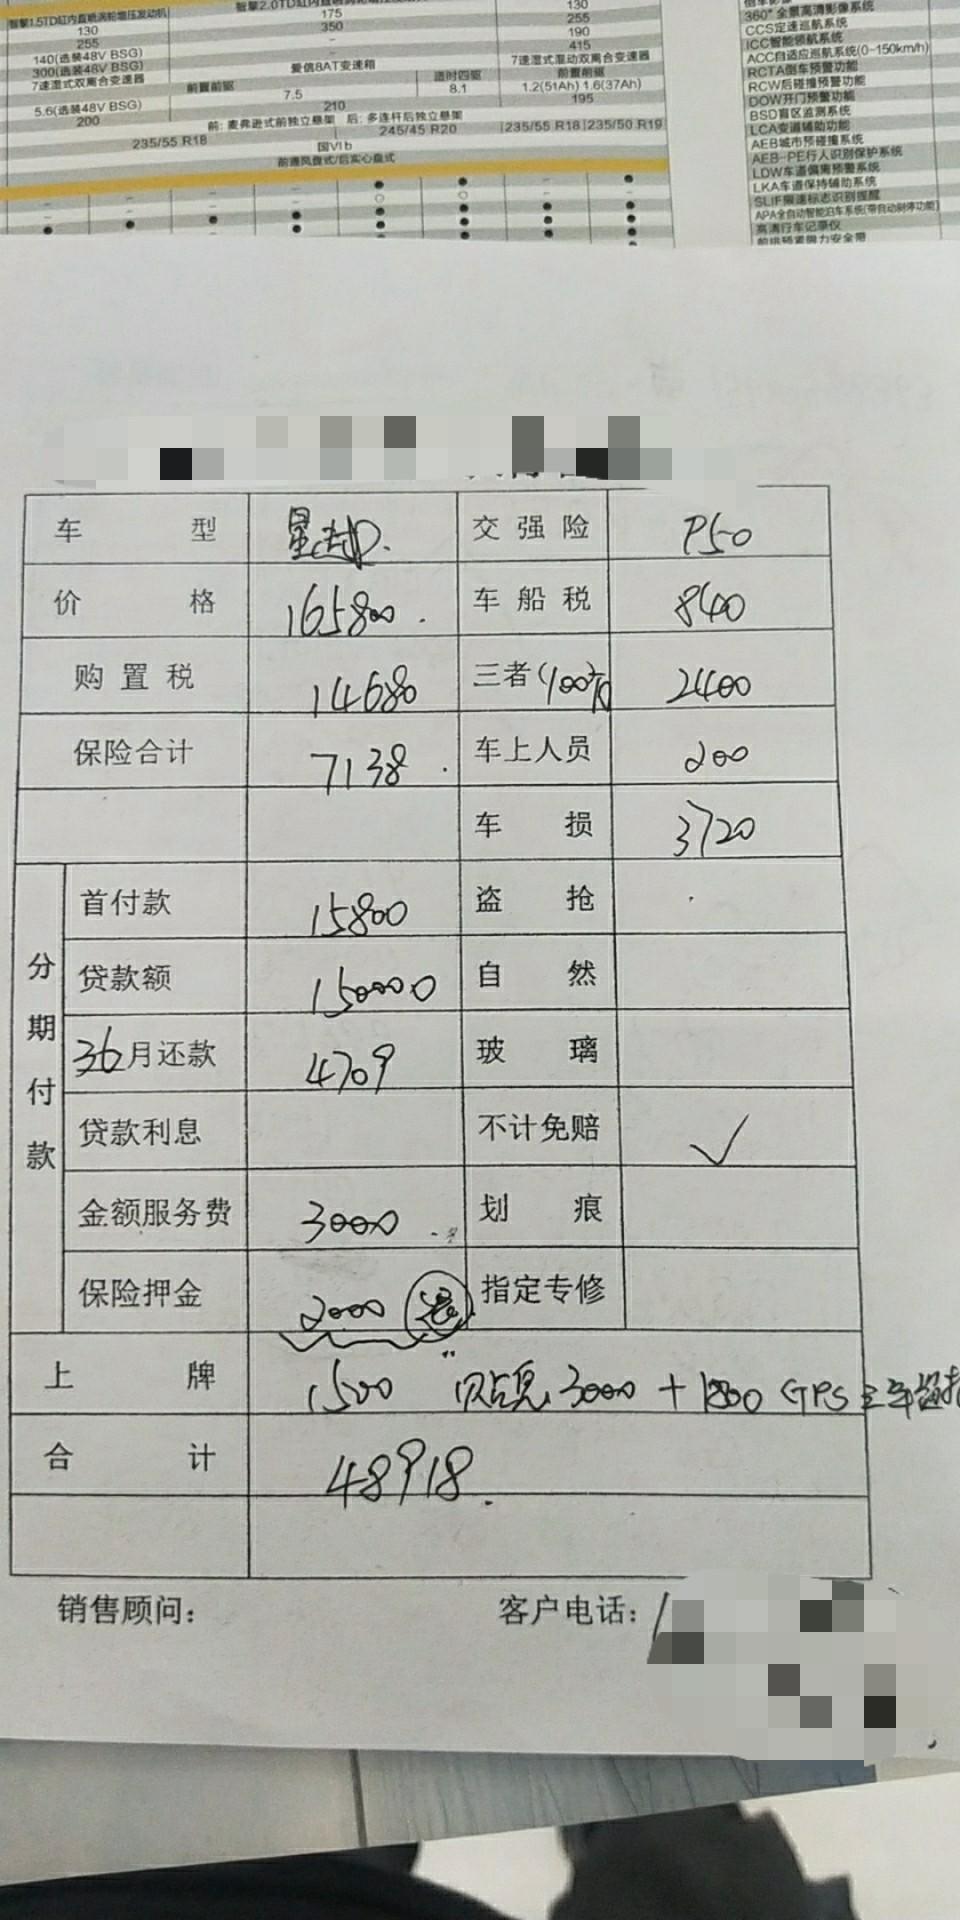 智擎1.5TD缸内直喷涡轮增压发动机
130
175
130
255
350
255
140(选装48V BSG)
190
300(选装48V BSG)
415
7速湿式双离合变速器
爱信8AT变速箱
7速湿式混动双离合变速器
前置前驱
适时四驱
前置前驱
5.6(选装48V BSG)
7.5
8.1
1.2(51Ah) 1.6(37Ah)
200
210
195
前: 麦弗逊式前独立悬架 后: 多连杆后独立悬架
235/55 R18
245/45 R20
235/55 R18
235/50 R19
国VIb
前通风盘式/后实心盘式
360° 全景高清影像系统
CCS定速巡航系统
ICC智能领航系统
ACC自适应巡航系统(0-150km/h)
RCTA倒车预警功能
RCW后碰撞预警功能
DOW开门预警功能
BSD盲区监测系统
LCA变道辅助功能
AEB城市预碰撞系统
AEB-PE行人识别保护系统
LDW车道偏离预警系统
LKA车道保持辅助系统
SLIF限速标志识别提醒
APA全自动智能泊车系统(带自动刹停功能)
高清行车记录仪
前排预紧限力安全带
车型 星越 交强险 950
价格 165800. 车船税 840
购置税 14680 三者(100万) 2400
保险合计 7138. 车上人员 200
车损 3720
分期付款
首付款 15800 盗抢
贷款额 150000 自然
36月还款 4709 玻璃
贷款利息 不计免赔 ✓
金额服务费 3000 划痕
保险押金 2000 退 指定专修
上牌 1500 贴息3000 + 1800 GPS
合计 48918.
销售顾问:
客户电话: